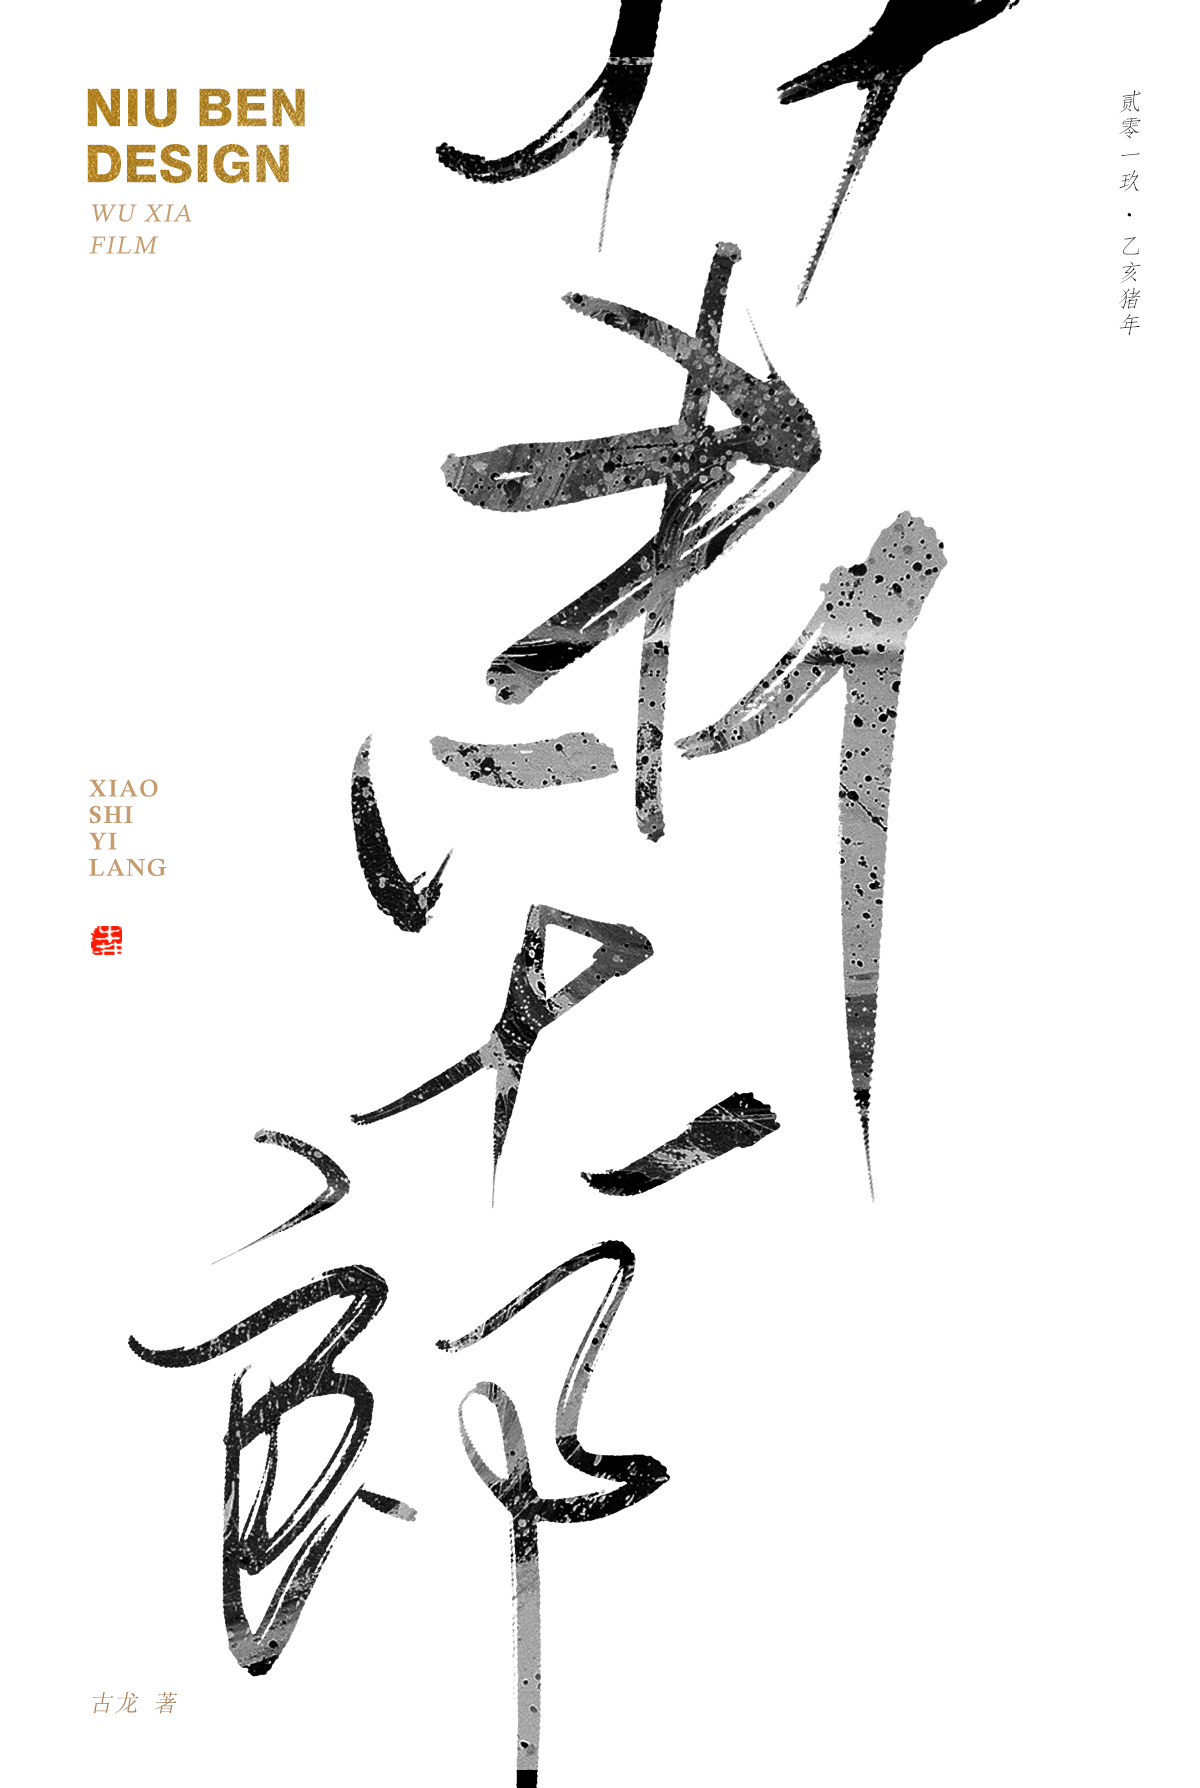 NIU BEN
DESIGN
WU XIA
FILM
贰零一玖·乙亥猪年
萧十一郎
XIAO
SHI
YI
LANG
古龙 著